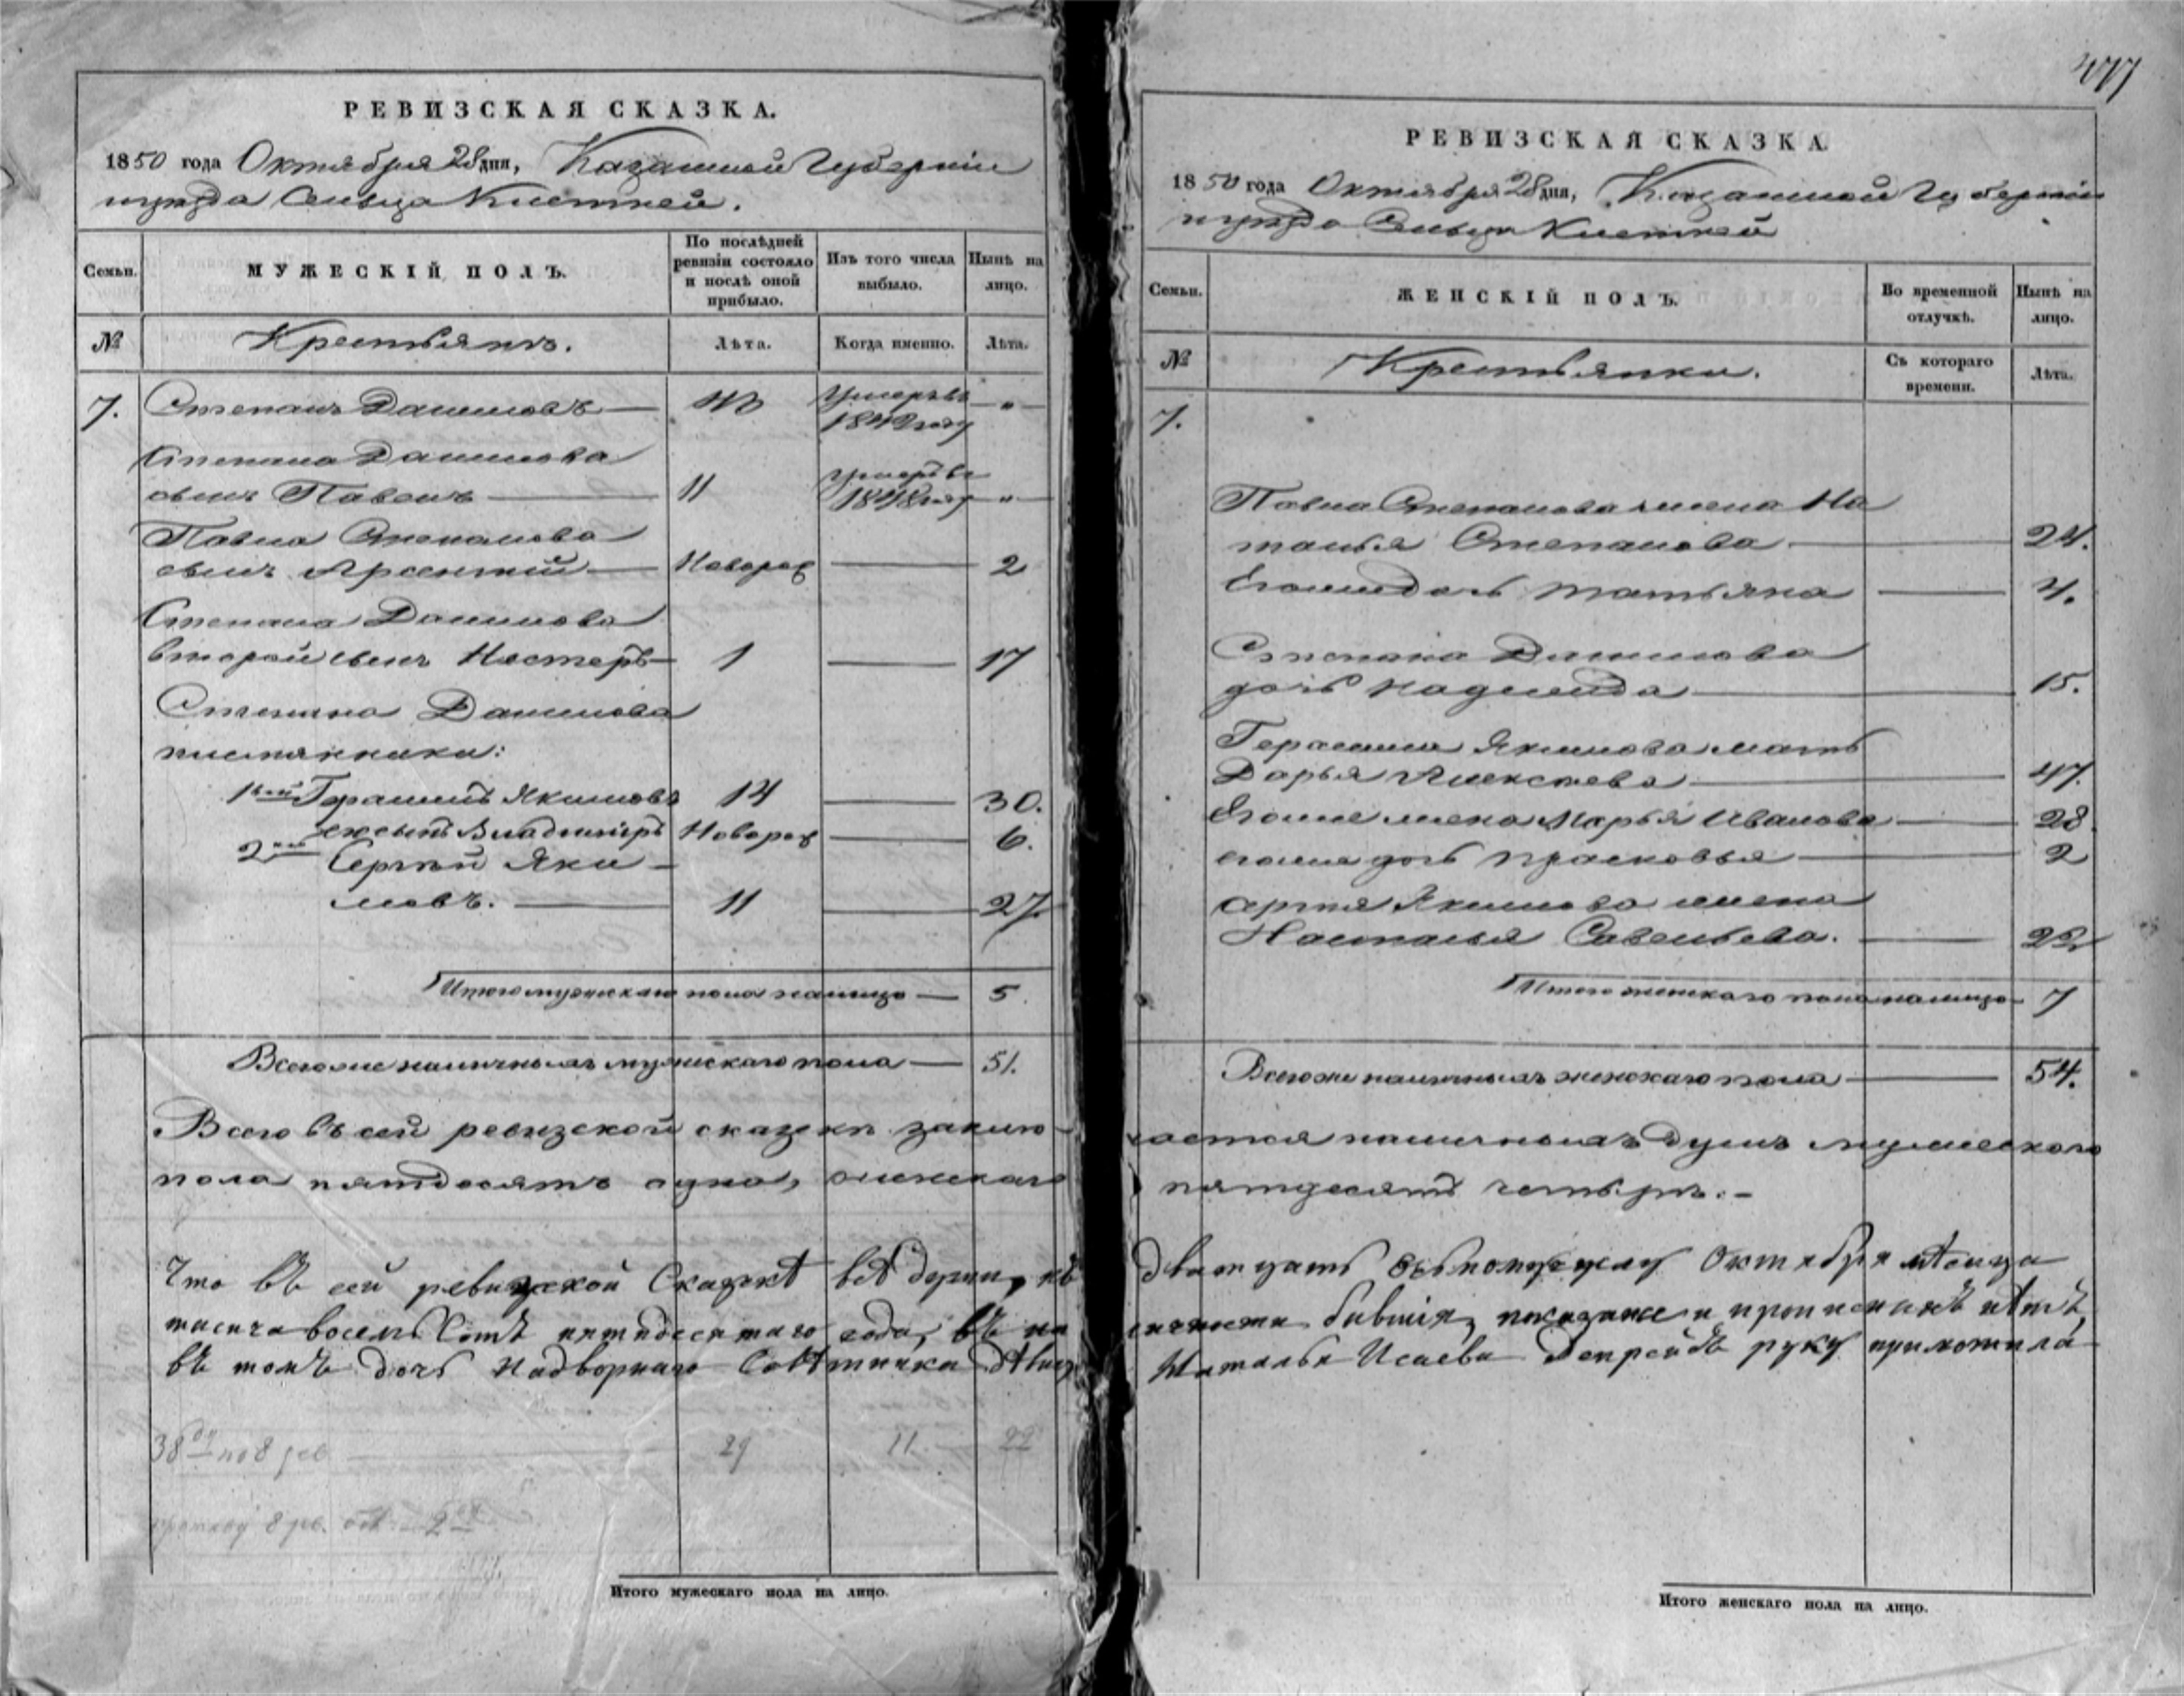 РЕВИЗСКАЯ СКАЗКА.
1850 года Октября 28 дня, Казанской Губерніи
уѣзда Сельца
Семьи. МУЖЕСКІЙ ПОЛЪ. По послѣдней ревизіи состояло и послѣ оной прибыло. Изъ того числа выбыло. Нынѣ на лицо.
№ Крестьянъ. Лѣта. Когда именно. Лѣта.
7. Степанъ Даниловъ — Умеръ въ — " —
1842 году
Степана Данилова
сынъ Павелъ — 11 Умеръ въ 1848 году — " —
Павла Степанова
сынъ Арсентій — Новорож — 2
Степана Данилова
второй сынъ Нестеръ — 1 — 17
Степана Данилова
племянники:
1й Герасимъ Якимовъ 14 — 30.
его сынъ Владимиръ Новорож — 6.
2й Сергѣй Яки-
мовъ. — 11 — 27.
Итого мужескаго пола налицо — 5.
Всего же наличныхъ мужескаго пола — 51.
Всего въ сей ревизской сказкѣ заклю-
пола пятдесятъ одна, женскаго
Что въ сей ревизской Сказкѣ всѣ души, къ
тысяча восемь сотъ пятидесятаго года, въ на
въ томъ дочь Надворнаго Совѣтника дѣвица
38 по 8 рев. — 29 11. — 22
8 рев.
Итого мужескаго пола на лицо.
РЕВИЗСКАЯ СКАЗКА.
1850 года Октября 28 дня, Казанской Губерніи
уѣзда Сельца
Семьи. ЖЕНСКІЙ ПОЛЪ. Во временной отлучкѣ. Нынѣ на лицо.
№ Крестьянки. Съ котораго времени. Лѣта.
7.
Павла Степанова жена На
талья Степанова — 24.
Его же дочь Татьяна — 4.
Степана Данилова
дочь Надежда — 15.
Герасима Якимова мать
Дарья Алексѣева — 47.
Его же жена Марья Иванова — 28
его же дочь Прасковья — 2
Сергѣя Якимова жена
Настасья Савельева. — 22
Итого женскаго пола налицо — 7
Всего же наличныхъ женскаго пола — 54.
чается наличныхъ душъ мужескаго
пятдесятъ четыре. —
двадцать осьмому числу Октября мѣсяца
личности бывшія, показаны и прописныхъ нѣтъ,
Наталья Исаева Депрейсъ руку приложила
Итого женскаго пола на лицо.